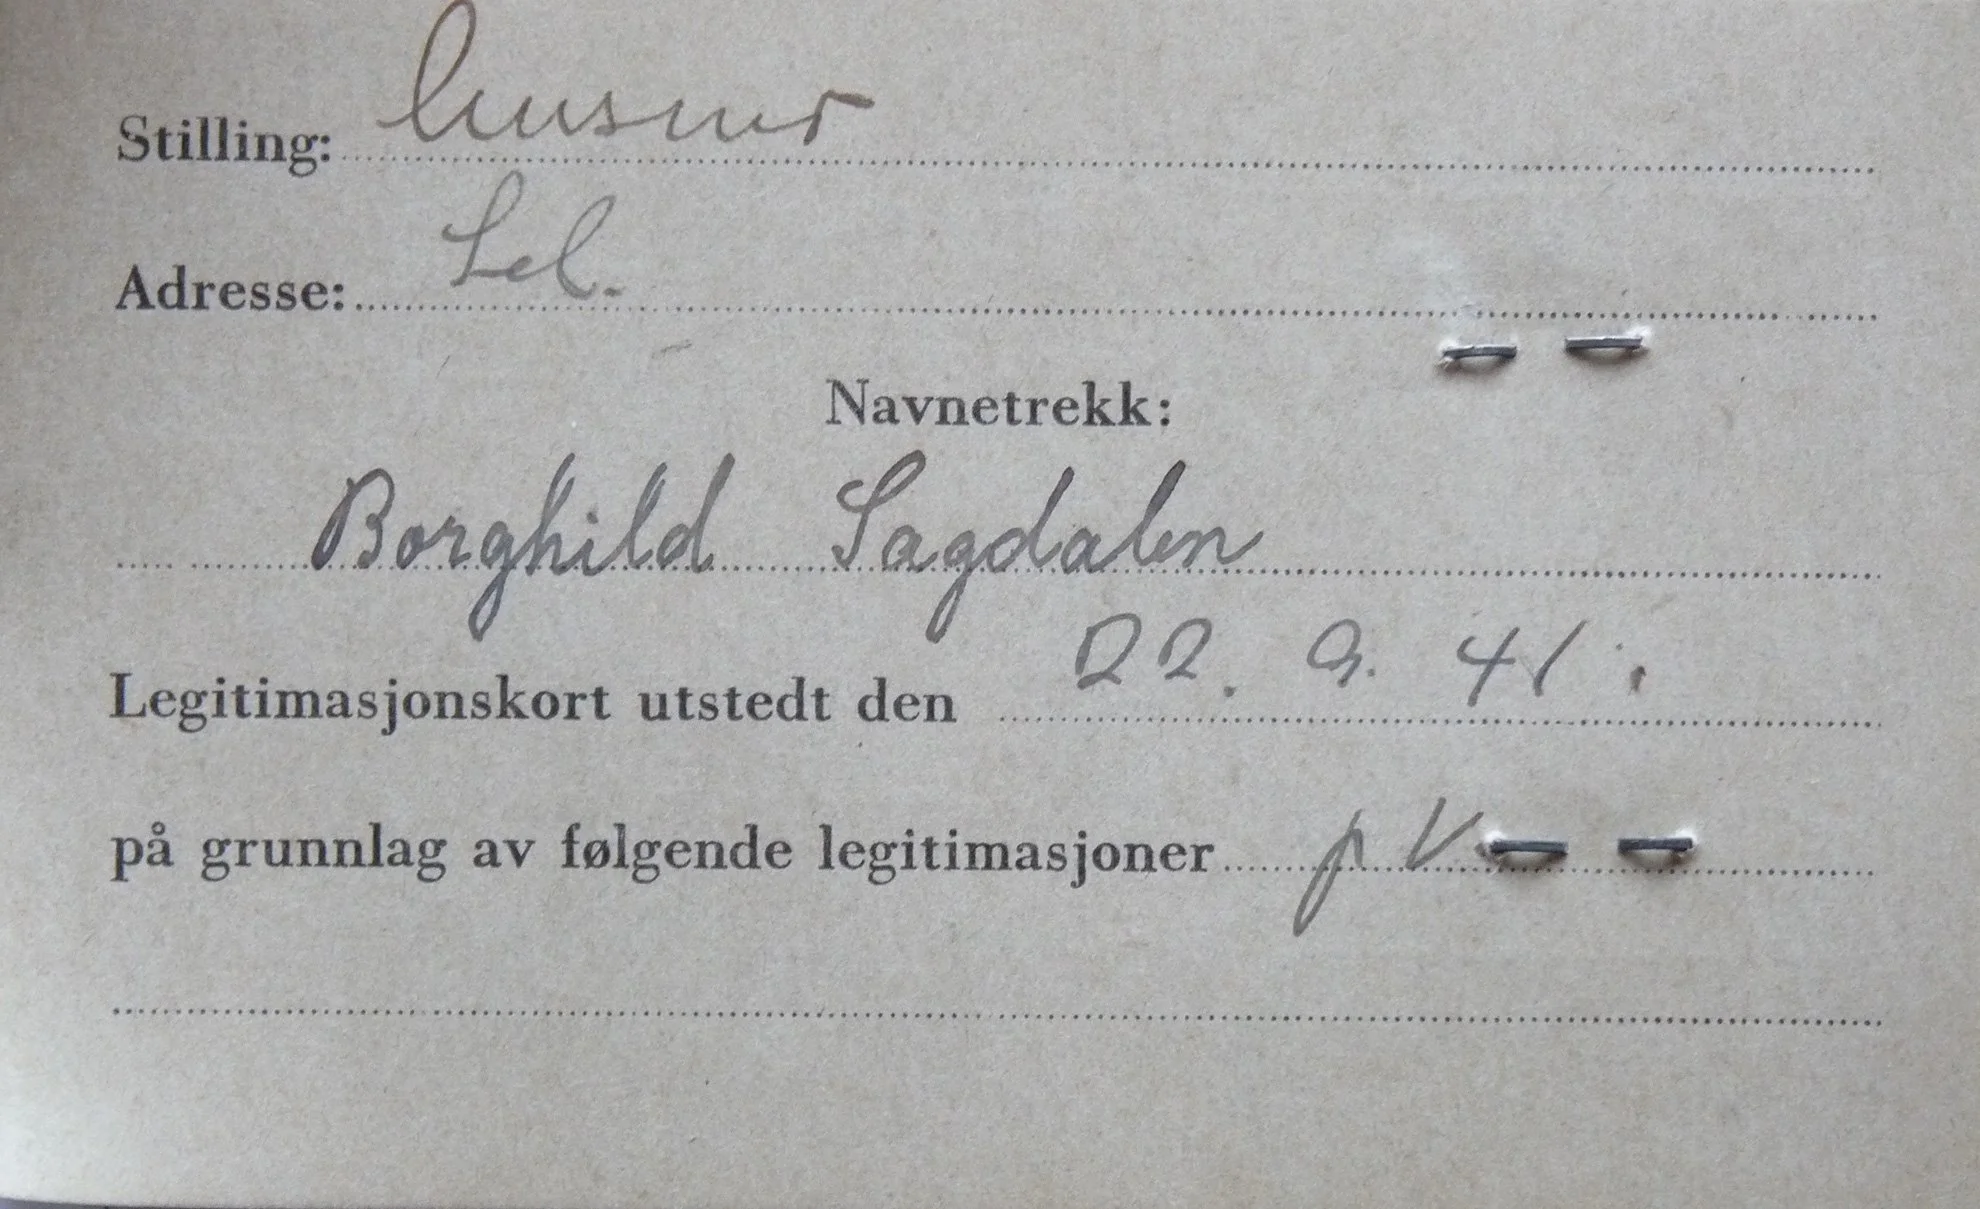 Stilling: husmor
Adresse: Lel.
Navnetrekk:
Borghild Sagdalen
Legitimasjonskort utstedt den 22. 9. 41.
på grunnlag av følgende legitimasjoner p V